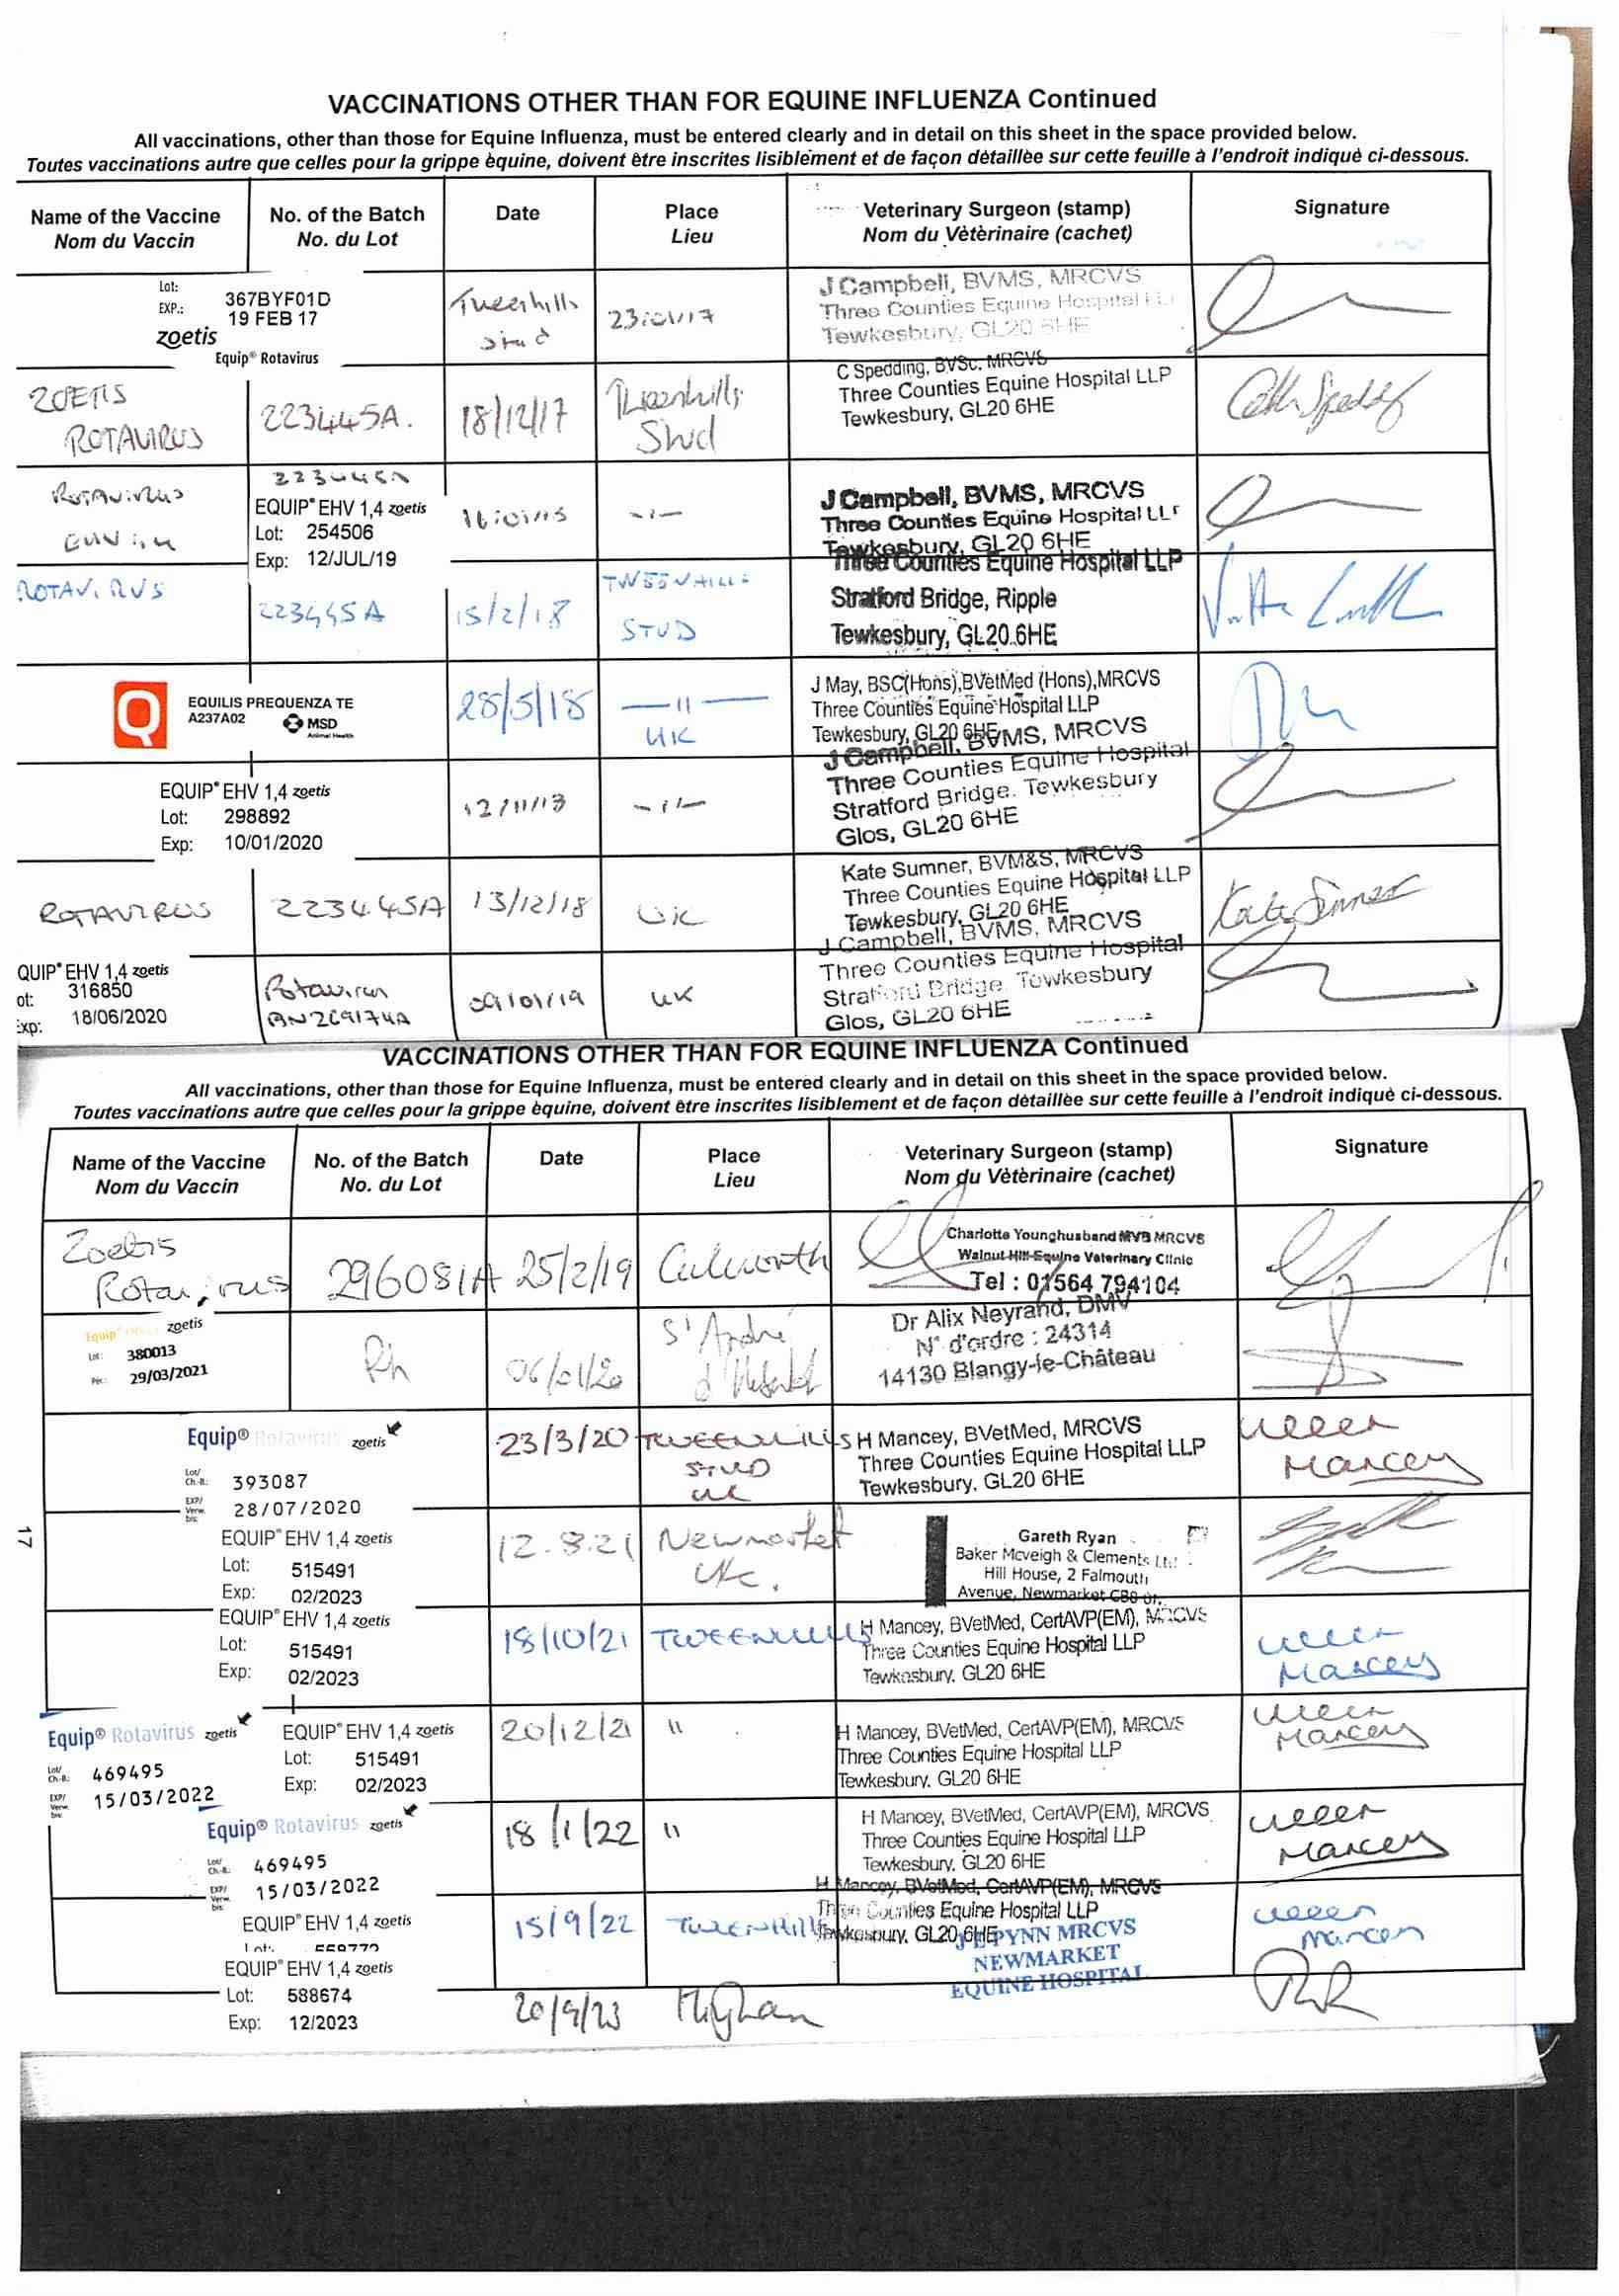 VACCINATIONS OTHER THAN FOR EQUINE INFLUENZA Continued
All vaccinations, other than those for Equine Influenza, must be entered clearly and in detail on this sheet in the space provided below.
Toutes vaccinations autre que celles pour la grippe èquine, doivent ètre inscrites lisiblement et de façon dètaillèe sur cette feuille à l'endroit indiquè ci-dessous.
Name of the Vaccine
Nom du Vaccin
No. of the Batch
No. du Lot
Date
Place
Lieu
Veterinary Surgeon (stamp)
Nom du Vètèrinaire (cachet)
Signature
Lot: 367BYF01D
EXP.: 19 FEB 17
zoetis
Equip® Rotavirus
Tweenhills
Stud
23/01/17
J Campbell, BVMS, MRCVS
Three Counties Equine Hospital LLP
Tewkesbury, GL20 6HE
ZOETIS
ROTAVIRUS
223445A.
18/12/17
Tweenhills
Stud
C Spedding, BVSc, MRCVS
Three Counties Equine Hospital LLP
Tewkesbury, GL20 6HE
Rotavirus
223445A
EQUIP® EHV 1,4 zoetis
Lot: 254506
Exp: 12/JUL/19
J Campbell, BVMS, MRCVS
Three Counties Equine Hospital LLP
Tewkesbury, GL20 6HE
ROTAVIRUS
223445A
15/2/18
TWEENHILLS
STUD
Three Counties Equine Hospital LLP
Stratford Bridge, Ripple
Tewkesbury, GL20 6HE
Q
EQUILIS PREQUENZA TE
A237A02
MSD
Animal Health
28/5/18
— 11 —
UK
J May, BSC(Hons),BVetMed (Hons),MRCVS
Three Counties Equine Hospital LLP
Tewkesbury, GL20 6HE
EQUIP® EHV 1,4 zoetis
Lot: 298892
Exp: 10/01/2020
J Campbell, BVMS, MRCVS
Three Counties Equine Hospital
Stratford Bridge. Tewkesbury
Glos, GL20 6HE
ROTAVIRUS
223445A
13/12/18
UK
Kate Sumner, BVM&S, MRCVS
Three Counties Equine Hospital LLP
Tewkesbury, GL20 6HE
Kate Sumner
QUIP® EHV 1,4 zoetis
ot: 316850
Exp: 18/06/2020
Rotavirus
BN269174A
09/01/19
UK
J Campbell, BVMS, MRCVS
Three Counties Equine Hospital
Stratford Bridge. Tewkesbury
Glos, GL20 6HE
VACCINATIONS OTHER THAN FOR EQUINE INFLUENZA Continued
All vaccinations, other than those for Equine Influenza, must be entered clearly and in detail on this sheet in the space provided below.
Toutes vaccinations autre que celles pour la grippe èquine, doivent ètre inscrites lisiblement et de façon dètaillèe sur cette feuille à l'endroit indiquè ci-dessous.
Name of the Vaccine
Nom du Vaccin
No. of the Batch
No. du Lot
Date
Place
Lieu
Veterinary Surgeon (stamp)
Nom du Vètèrinaire (cachet)
Signature
Zoetis
Rotavirus
296081A
25/2/19
Culworth
Charlotte Younghusband MVB MRCVS
Walnut Hill Equine Veterinary Clinic
Tel : 01564 794104
Equip zoetis
Lot: 380013
29/03/2021
Rh
06/01/20
St André
Dr Alix Neyrand, DMV
N° d'ordre : 24314
14130 Blangy-le-Château
Equip® Rotavirus zoetis
Lot/ Ch.-B.: 393087
EXP/ Verw. bis: 28/07/2020
23/3/20
TWEENHILLS
STUD
UK
H Mancey, BVetMed, MRCVS
Three Counties Equine Hospital LLP
Tewkesbury, GL20 6HE
Mancey
17
EQUIP® EHV 1,4 zoetis
Lot: 515491
Exp: 02/2023
12.8.21
Newmarket
UK.
Gareth Ryan
Baker Mcveigh & Clements Ltd
Hill House, 2 Falmouth
Avenue, Newmarket CB8
EQUIP® EHV 1,4 zoetis
Lot: 515491
Exp: 02/2023
18/10/21
TWEENHILLS
H Mancey, BVetMed, CertAVP(EM), MRCVS
Three Counties Equine Hospital LLP
Tewkesbury, GL20 6HE
Mancey
Equip® Rotavirus zoetis
Lot/ Ch.-B.: 469495
EXP/ Verw. bis: 15/03/2022
EQUIP® EHV 1,4 zoetis
Lot: 515491
Exp: 02/2023
20/12/21
"
H Mancey, BVetMed, CertAVP(EM), MRCVS
Three Counties Equine Hospital LLP
Tewkesbury, GL20 6HE
Mancey
Equip® Rotavirus zoetis
Lot/ Ch.-B.: 469495
EXP/ Verw. bis: 15/03/2022
18/1/22
"
H Mancey, BVetMed, CertAVP(EM), MRCVS
Three Counties Equine Hospital LLP
Tewkesbury, GL20 6HE
Mancey
EQUIP® EHV 1,4 zoetis
15/9/22
Tweenhills
H Mancey, BVetMed, CertAVP(EM), MRCVS
Three Counties Equine Hospital LLP
Tewkesbury, GL20 6HE
Mancey
EQUIP® EHV 1,4 zoetis
Lot: 588674
Exp: 12/2023
20/9/23
PYNN MRCVS
NEWMARKET
EQUINE HOSPITAL